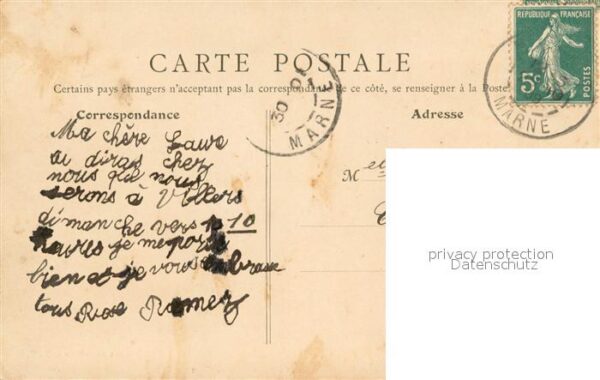 RÉPUBLIQUE FRANÇAISE
5c
POSTES
CARTE POSTALE
30
MARNE
MARNE
Certains pays étrangers n'acceptant pas la correspondance de ce côté, se renseigner à la Poste
Correspondance
Adresse
Ma chère
tu diras chez
nous que nous
serons à Villers
dimanche vers 10
heures je me porte
bien et je vous embrasse
tous Rose Ramery
M
privacy protection
Datenschutz